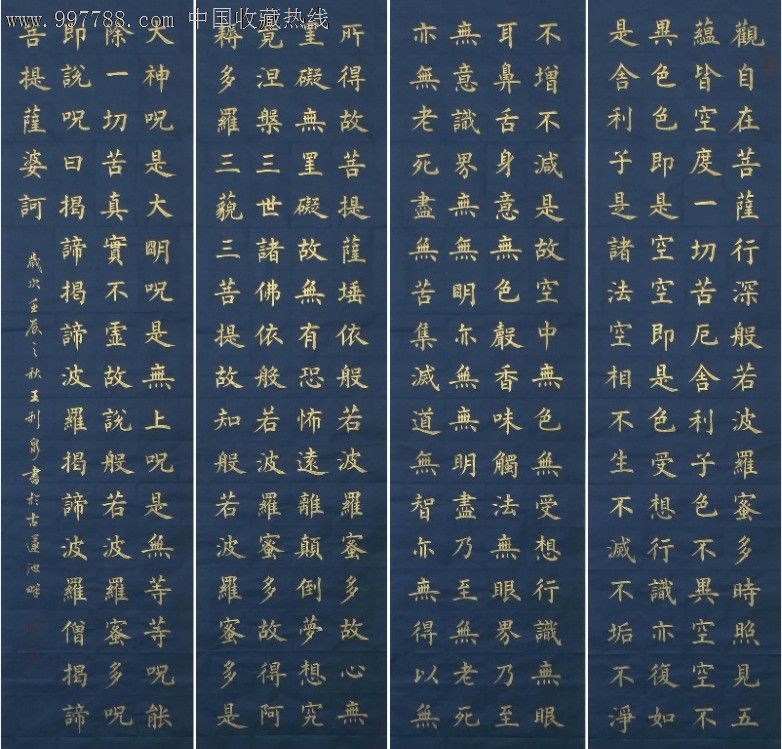 www.997788.com 中国收藏热线
觀自在菩薩行深般若波羅蜜多時照見五
蘊皆空度一切苦厄舍利子色不異空空不
異色色即是空空即是色受想行識亦復如
是舍利子是諸法空相不生不滅不垢不淨
不增不減是故空中無色無受想行識無眼
耳鼻舌身意無色聲香味觸法無眼界乃至
無意識界無無明亦無無明盡乃至無老死
亦無老死盡無苦集滅道無智亦無得以無
所得故菩提薩埵依般若波羅蜜多故心無
罣礙無罣礙故無有恐怖遠離顛倒夢想究
竟涅槃三世諸佛依般若波羅蜜多故得阿
耨多羅三藐三菩提故知般若波羅蜜多是
大神呪是大明呪是無上呪是無等等呪能
除一切苦真實不虛故說般若波羅蜜多呪
即說呪曰揭諦揭諦波羅揭諦波羅僧揭諦
菩提薩婆訶
歲次壬辰之秋王利書於古蓮池畔